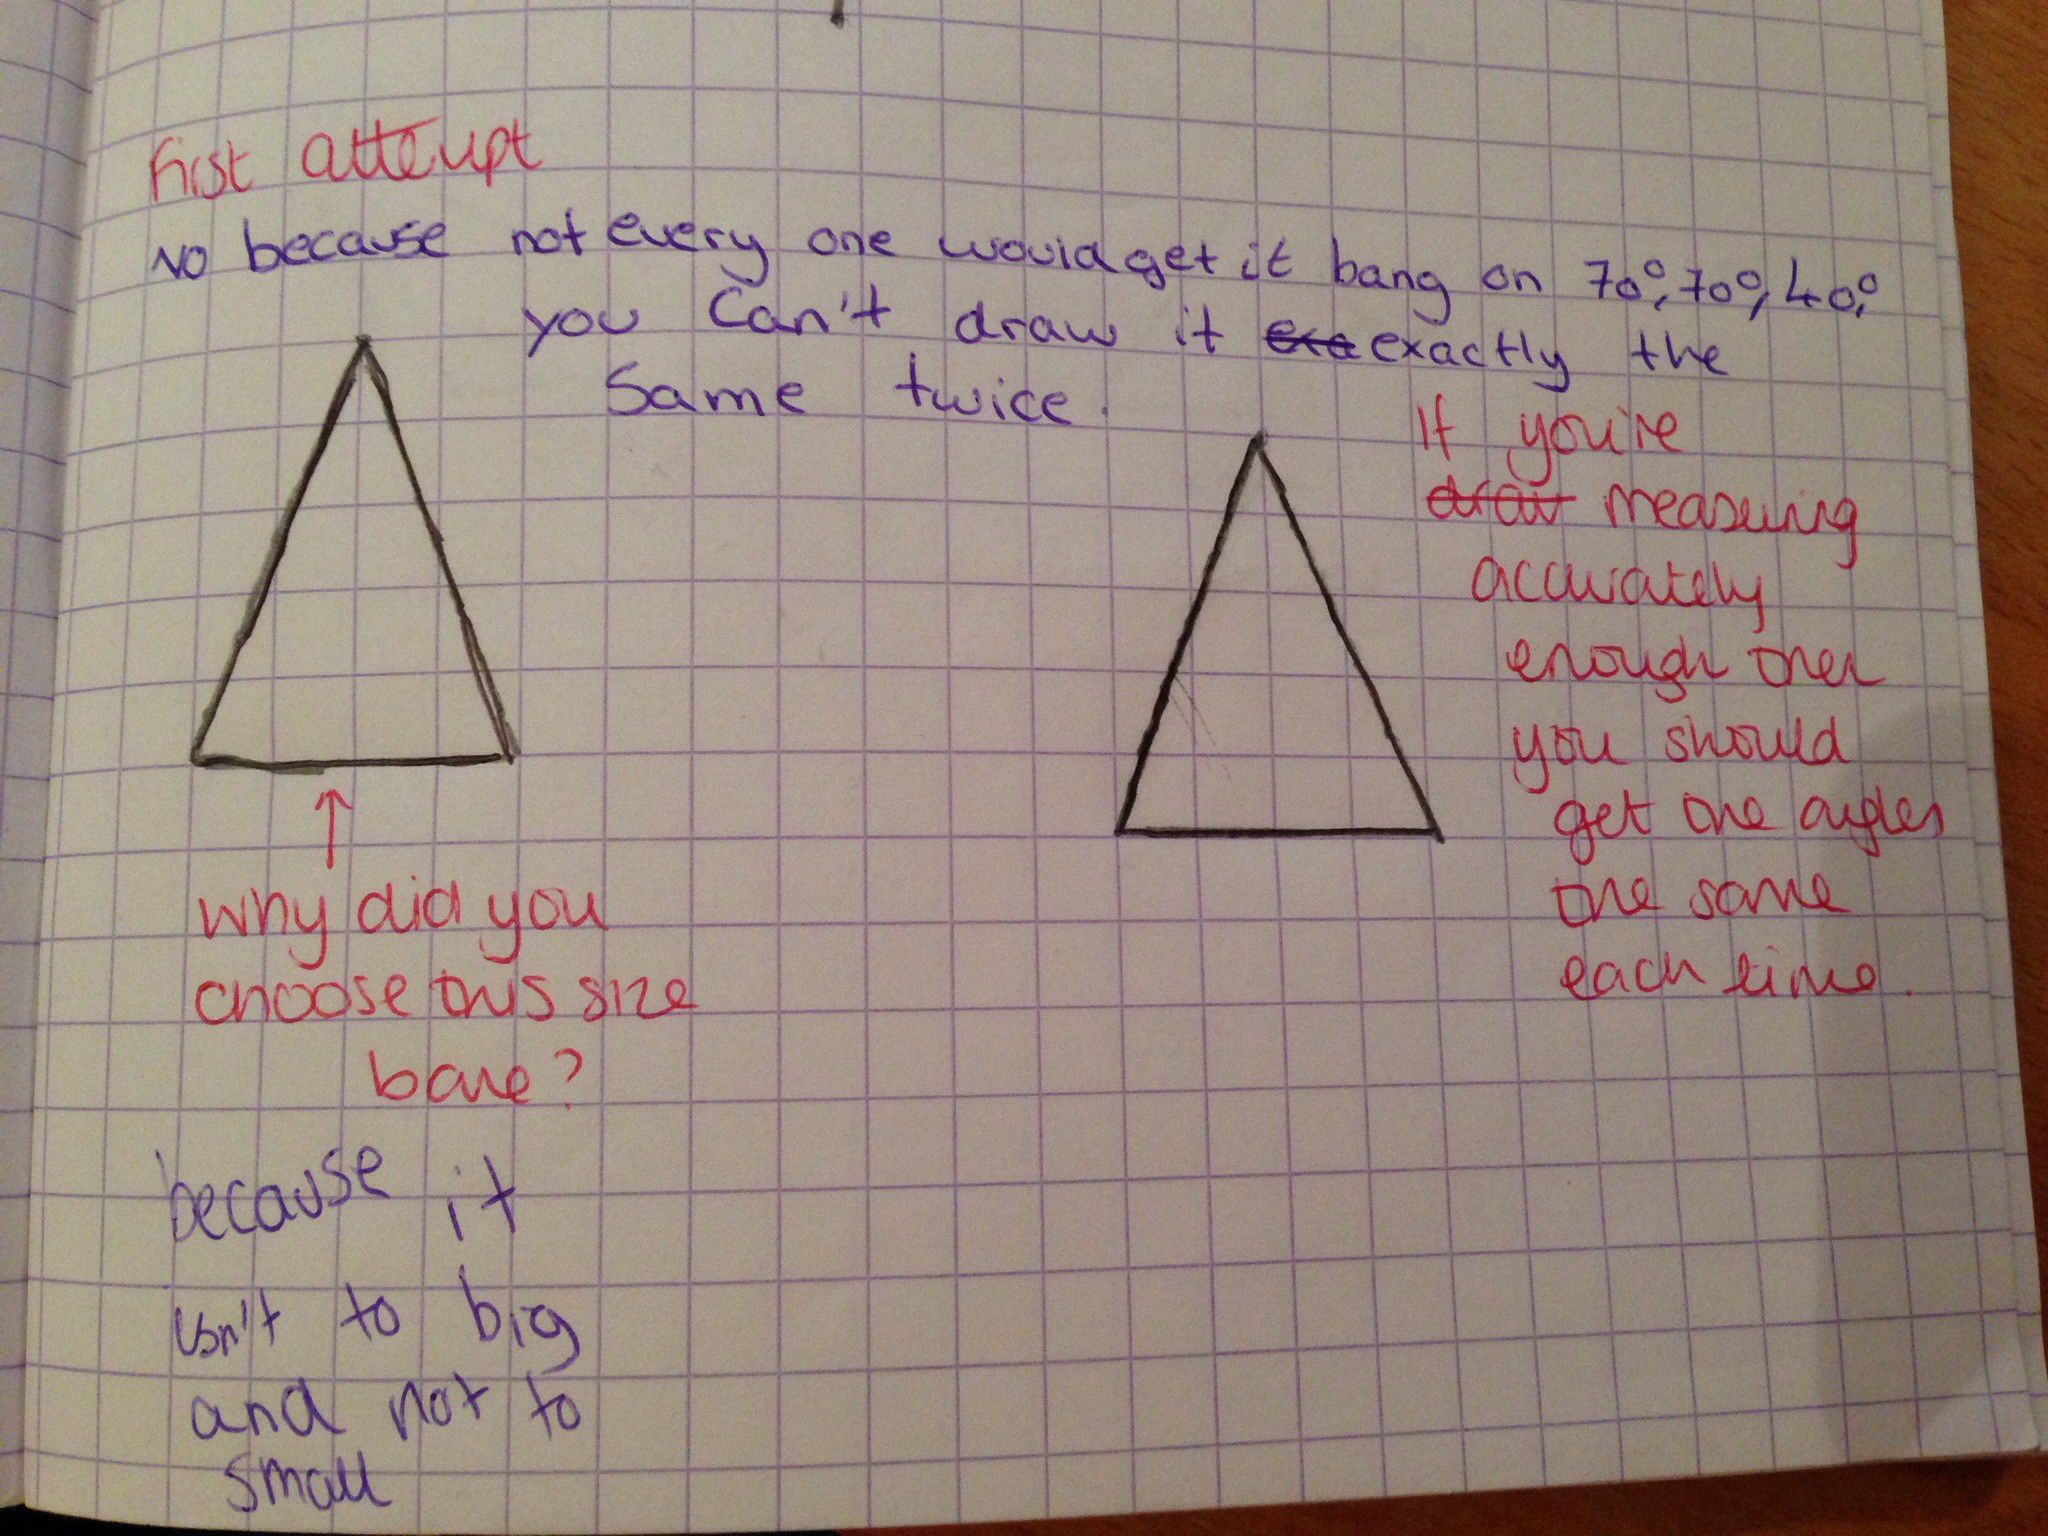 First attempt
No because not every one would get it bang on 70°, 70°, 40°,
you can't draw it exactly the
same twice.
If you're
draw measuring
accurately
enough then
you should
get the angles
the same
each time.
why did you
choose this size
base?
because it
isn't to big
and not to
small